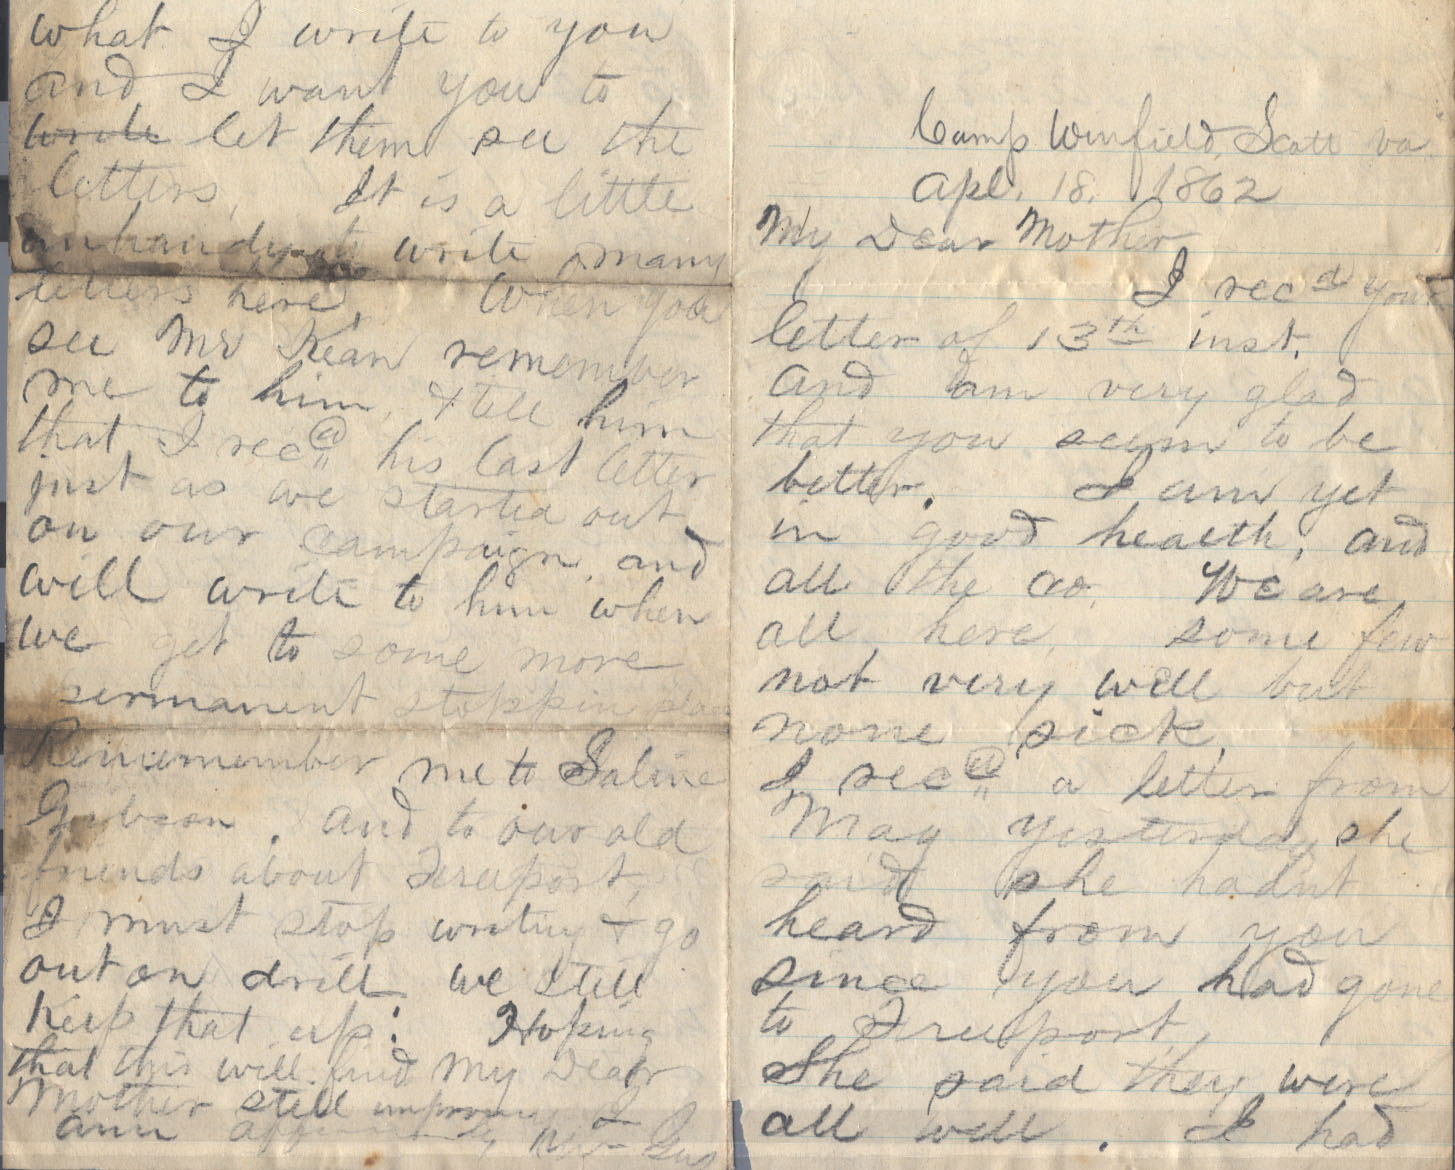 Camp Winfield Scott va.
Apl. 18. 1862
My Dear Mother
I recd your
letter of 13th inst.
and am very glad
that you seem to be
better. I am yet
in good health, and
all the co. We are
all here, some few
not very well but
none sick,
I recd a letter from
Mag yesterday she
said she hadnt
heard from you
since you had gone
to Freeport,
She said they were
all well. I had
what I write to you
and I want you to
write let them see the
letters, It is a little
unhandy to write many
letters here, When you
see Mr Kean remember
me to him, & tell him
that I recd his last letter
just as we started out
on our campaign, and
will write to him when
we get to some more
permanent stoppin place
Rememember me to Saline
Gibson, and to our old
friends about Freeport,
I must stop writing & go
out on drill we still
keep that up: Hoping
that this will find My Dear
Mother still improving I
am Gus